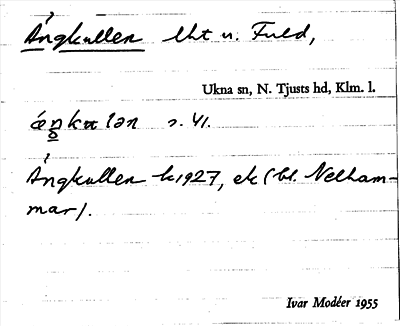 Ångkullen lht n. Fuld,
Ukna sn, N. Tjusts hd, Klm. l.
s. 41.
Ångkullen k 1927, ek (bl. Nelham-
mar).
Ivar Modéer 1955